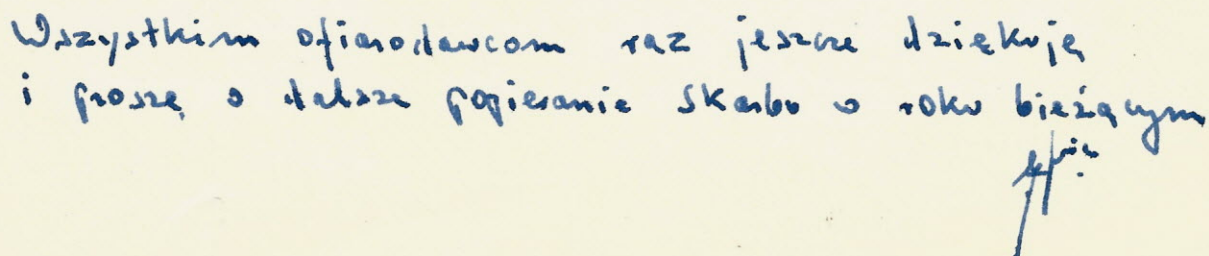 Wszystkim ofiarodawcom raz jeszcze dziękuję
i proszę o dalsze popieranie Skarbu w roku bieżącym